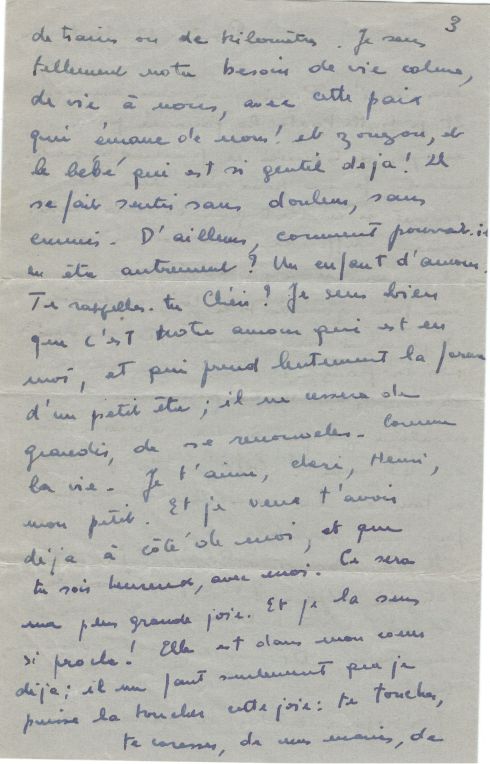 3
de trains ou de kilomètres. Je sens
tellement notre besoin de vie calme,
de vie à nous, avec cette paix
qui émane de nous! et zouzou, et
le bébé qui est si gentil déjà! Il
se fait sentir sans douleur, sans
ennuis. D'ailleurs, comment pouvait-il
en être autrement? Un enfant d'amour.
Te rappelles-tu Chéri? Je sens bien
que c'est notre amour qui est en
moi, et qui prend lentement la forme
d'un petit être; il ne cessera de
grandir, de se renouveler. Comme
la vie. Je t'aime, cheri, Henri,
mon petit. Et je veux t'avoir
déja à côté de moi, et que
tu sois heureux, avec moi. Ce sera
ma plus grande joie. Et je la sens
si proche! Elle est dans mon coeur
déja; il me faut seulement que je
puisse la toucher cette joie: te toucher,
te caresser, de mes mains, de